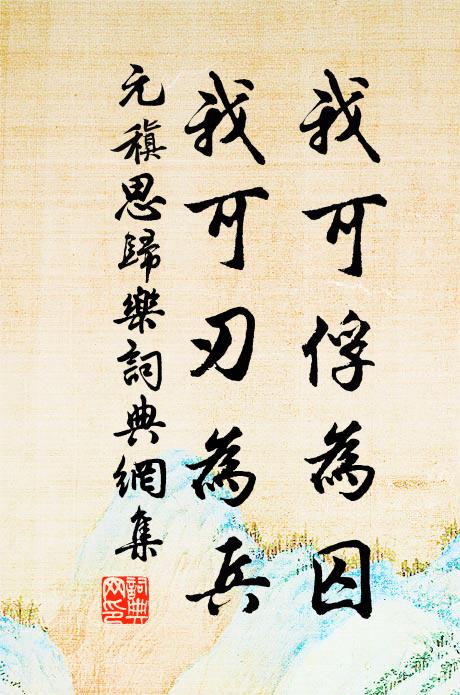 我可俘為囚
我可刃為兵
元稹思歸樂詞典網集
詞典
网印